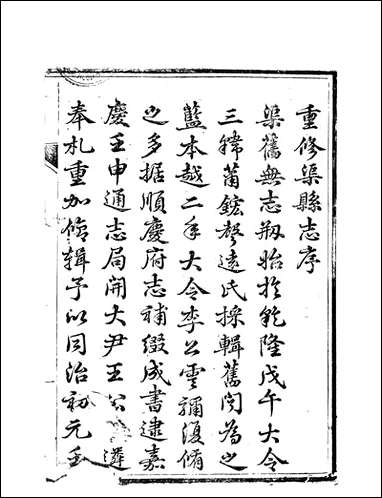 重修渠縣志序
渠舊無志刱始於乾隆戊午大令
三韓莆鋐聲遠氏採輯舊闻為之
藍本越二年大令李公雲彌復脩
之多据順慶府志補綴成書逮嘉
慶壬申通志局開大尹王公遴
奉札重加脩輯予以同治初元壬